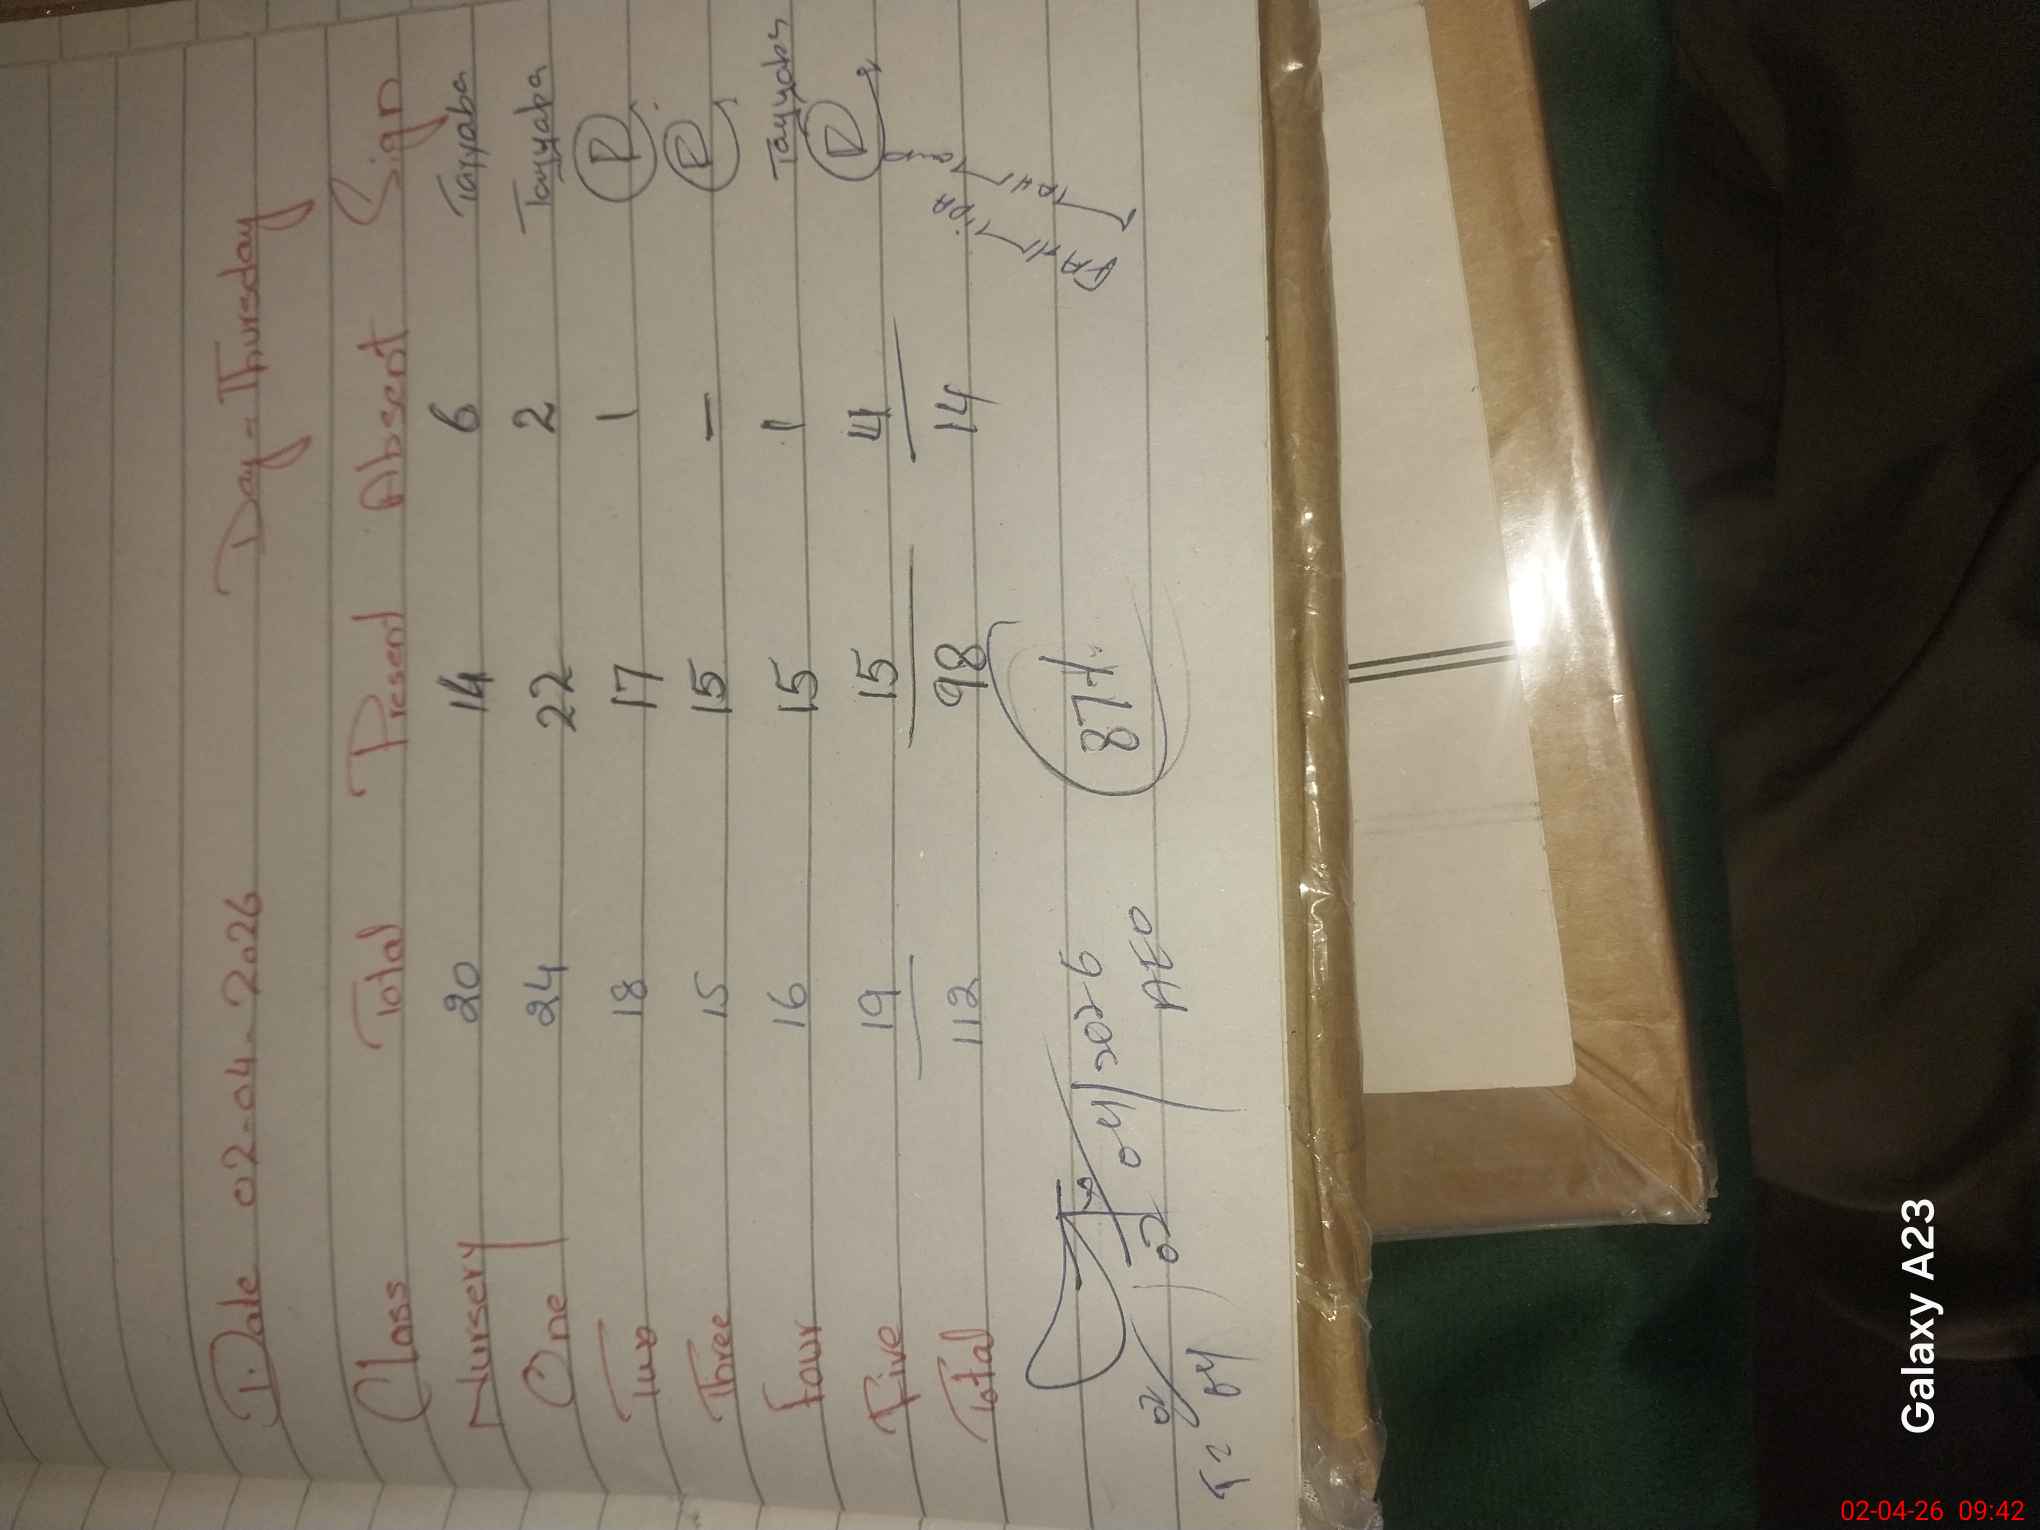 Date 02-04-2026 Day - Thursday
Class Total Present Absent Sign
Nursery 20 14 6 Tayyaba
One 24 22 2 Tayyaba
Two 18 17 1
Three 15 15 –
Four 16 15 1 Tayyaba
Five 19 15 4
Total 112 98 14
87%
02 04/2026
AEO
Galaxy A23
02-04-26 09:42